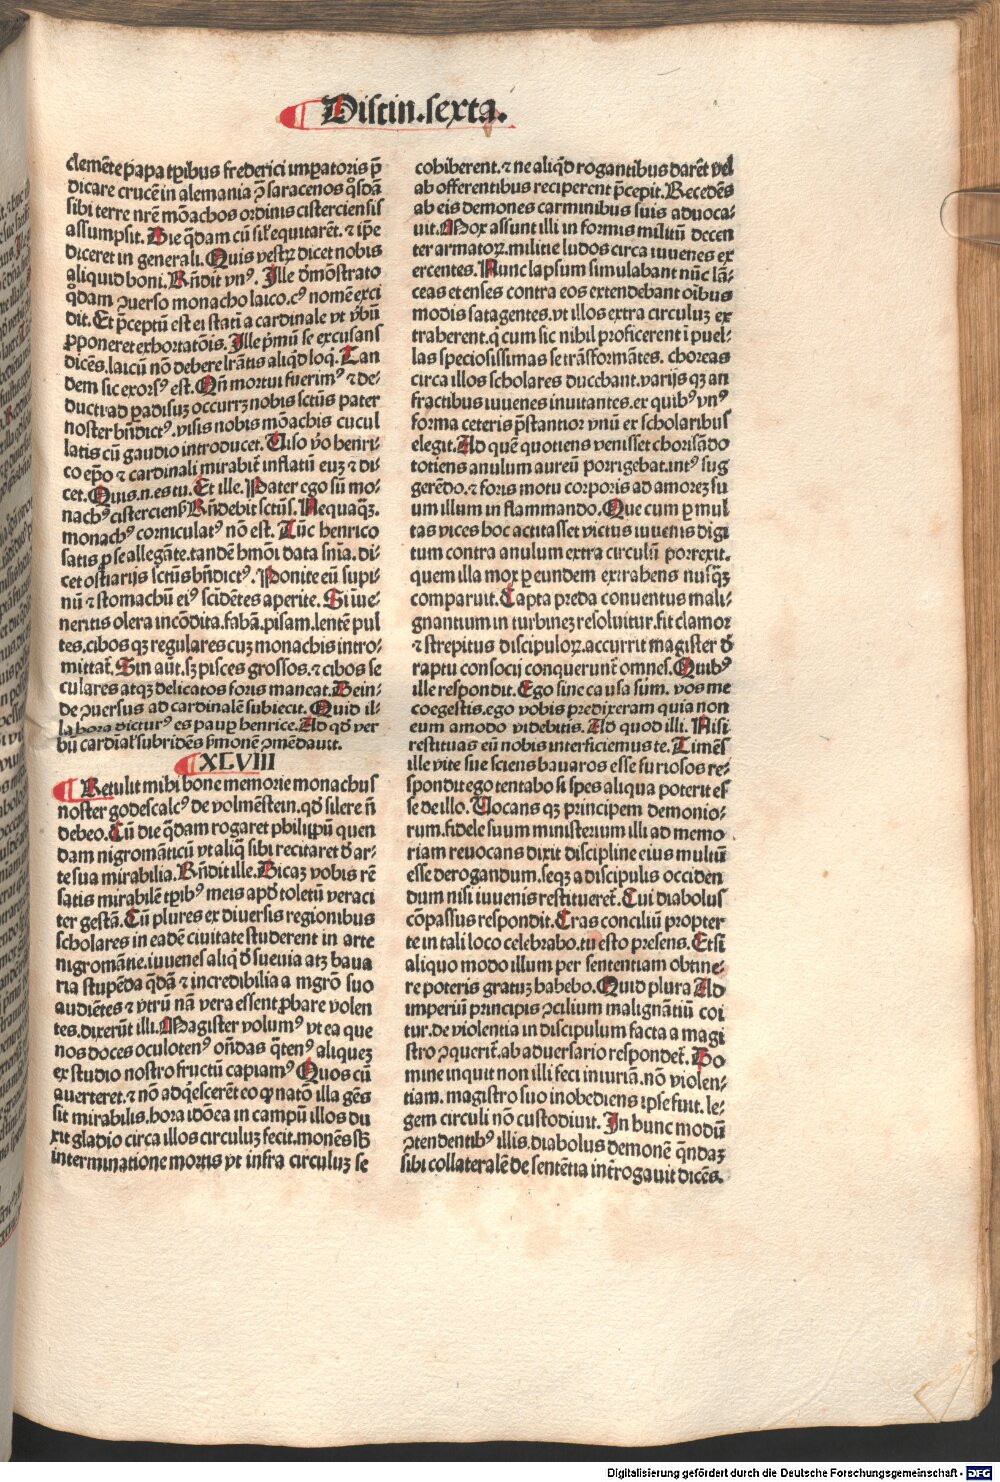 Distin.sexta.
clemēte papa tꝑibus frederici imꝑatoris p̄
dicare crucē in alemania ꝯ saracenos q̄sdā
sibi terre nr̄e mōachos ordinis cisterciensis
assumpsit. Die q̄dam cū sil̓ equitarēt. ⁊ ip̄e
diceret in generali. Quis vestrꝝ dicet nobis
aliquid boni. Rn̄dit vnꝰ. Ille dmōstrato
q̄dam ꝯuerso monacho laico. cꝰ nomē exci
dit. Et p̄ceptū est ei statī a cardinale vt ṽbū
ꝓponeret exhortatōis. Ille p̓mū se excusans
dicēs. laicū nō debere lr̄atis aliqd̓ loq̓. Tan
dem sic exorsꝰ est. Qn̄ mortui fuerimꝰ ⁊ de-
ducti ad ꝑadisuꝫ occurrꝫ nobis sctūs pater
noster bn̄dictꝰ. visis nobis mōachis cucul
latis cū gaudio introducet. Viso ṽo henri-
co ep̄o ⁊ cardinali mirabit̓ inflatū euꝫ ⁊ di-
cet. Quis.n.es tu. Et ille. Pater ego sū mo-
nachꝰ cisterciensꝭ Rn̄debit sctūs. Nequaqꝫ.
monachꝰ corniculatꝰ nō est. Tūc henrico
satis ꝓ se allegāte. tandē hmōi data sn̄ia. di-
cet ostiarijs sctūs bn̄dictꝰ. Ponite eū supi-
nū ⁊ stomachū eiꝰ scīdētes aperite. Si īue-
neritis olera incōdita. fabā. pisam. lentē pul
tes. cibos qꝫ regulares cuꝫ monachis intro-
mittat̓. Sin aūt. sꝫ pisces grossos. ⁊ cibos se
culares atqꝫ delicatos foris maneat. Dein-
de ꝯuersus ad cardinalē subiecit. Quid il-
la hora dicturꝰ es pauꝑ henrice. Ad qd̓ ver
bū cardial̓ subridēs ẜmonē ꝯmēdauit.
XLVIII
Retulit mihi bone memorie monachus
noster godescalcꝰ de volmēstein. qd̓ silere n̄
debeo. Cū die q̄dam rogaret philippū quen
dam nigromāticū vt aliq̓ sibi recitaret d̓ ar-
te sua mirabilia. Rn̄dit ille. Dicaꝫ vobis rē
satis mirabilē tꝑibꝰ meis apd̓ toletū veraci
ter gestā. Cū plures ex diuersis regionibus
scholares in eadē ciuitate studerent in arte
nigromātie. iuuenes aliq̓ d̓ sueuia atꝫ baua
ria stupēda q̄dā ⁊ incredibilia a mgr̄o suo
audiētes ⁊ vtrū nā vera essent ꝓbare volen
tes. dixerūt illi. Magister volumꝰ vt ea que
nos doces oculotenꝰ on̄das q̓tenꝰ aliqueꝫ
ex studio nostro fructū capiamꝰ Quos cū
auerteret. ⁊ nō adq̓escerēt eo q̓ natō illa gēs
sit mirabilis. hora idōea in campū illos du
xit gladio circa illos circuluꝫ fecit. monēs sb̓
interminatione mortis vt infra circuluꝫ se
cohiberent. ⁊ ne aliqd̓ rogantibus darēt vel
ab offerentibus reciperent p̄cepit. Recedēs
ab eis demones carminibus suis aduoca-
uit. Mox assunt illi in formis militū decen
ter armatoꝝ. militie ludos circa iuuenes ex
ercentes. Nunc lapsum simulabant nūc lā-
ceas et enses contra eos extendebant oībus
modis satagentes. vt illos extra circuluꝫ ex
traherent. q̓ cum sic nihil proficerent ī puel-
las speciosissimas se trāsformātes. choreas
circa illos scholares ducebant. varijs qꝫ an
fractibus iuuenes inuitantes. ex quibꝰ vnꝰ
forma ceteris p̄stantior vnū ex scholaribus
elegit. Ad quē quotiens venisset chorisādo
totiens anulum aureū porrigebat. intꝰ sug
gerēdo. ⁊ foris motu corporis ad amoreꝫ su
um illum inflammando. Que cum ꝑ mul
tas vices hoc actitasset victus iuuenis digi
tum contra anulum extra circulū porrexit.
quem illa mox ꝑ eundem extrahens nusq̄ꝫ
comparuit. Capta preda conuentus mali-
gnantium in turbineꝫ resoluitur. fit clamor
⁊ strepitus discipuloꝝ. accurrit magister d̓
raptu consocij conquerunt̓ omnes. Quibꝰ
ille respondit. Ego sine causa sum. vos me
coegestis. ego vobis predixeram quia non
eum amodo videbitis. Ad quod illi. Nisi
restituas eū nobis interficiemus te. Timēs
ille vite sue sciens bauaros esse furiosos re-
spondit ego tentabo si spes aliqua poterit es
se de illo. Vocans qꝫ principem demonio-
rum. fidele suum ministerium illi ad memo
riam reuocans dixit discipline eius multū
esse derogandum. seqꝫ a discipulis occiden
dum nisi iuuenis restitueret̓. Cui diabolus
cōpassus respondit. Cras conciliū propter
te in tali loco celebrabo. tu esto presens. Et si
aliquo modo illum per sententiam obtine-
re poteris gratuꝫ habebo. Quid plura Ad
imperiū principis ꝯcilium malignātiū coi
tur. de violentia in discipulum facta a magi
stro ꝯquerit̓. ab aduersario respondet̓. Do
mine inquit non illi feci iniuriā. nō violen-
tiam. magistro suo inobediens ipse fuit. le-
gem circuli nō custodiuit. In hunc modū
ꝯtendentibꝰ illis. diabolus demonē q̄ndaꝫ
sibi collateralē de sentētia introgauit dicēs.
Digitalisierung gefördert durch die Deutsche Forschungsgemeinschaft - DFG